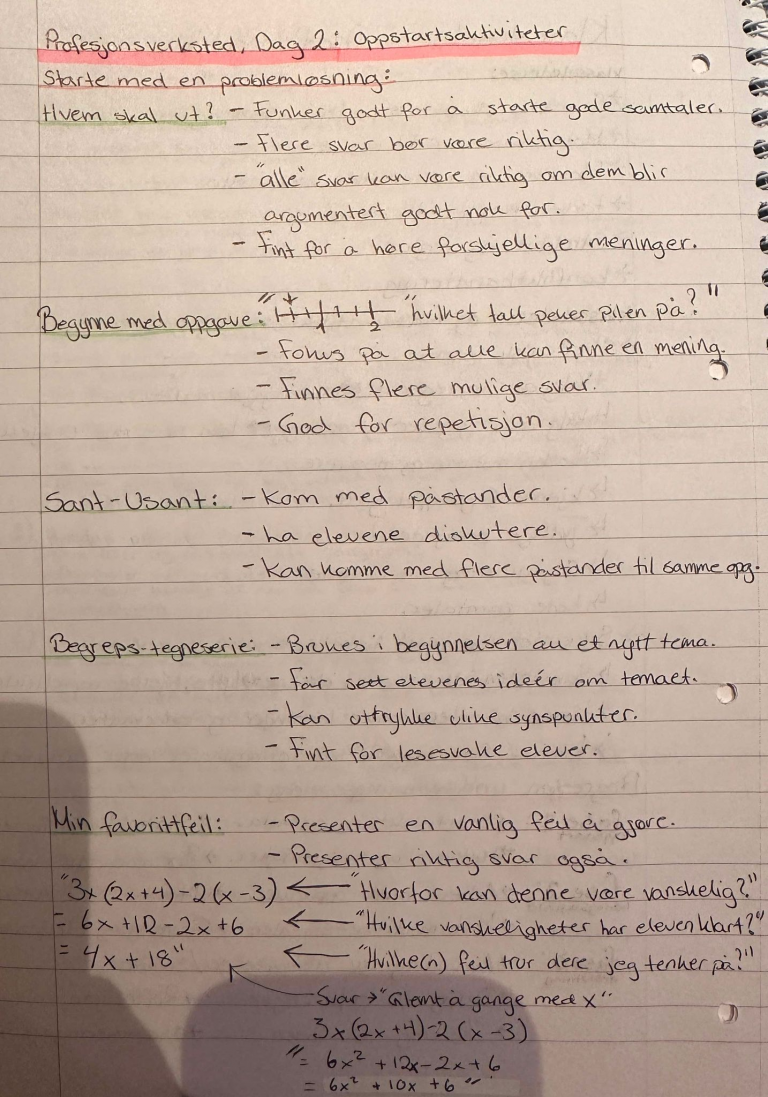 Profesjonsverksted, Dag 2: Oppstartsaktiviteter
Starte med en problemløsning:
Hvem skal ut? - Funker godt for å starte gode samtaler.
- Flere svar bør være riktig.
- "alle" svar kan være riktig om dem blir
argumentert godt nok for.
- Fint for å høre forskjellige meninger.
Begynne med oppgave: " 1 2 "hvilket tall peker pilen på?"
- Fokus på at alle kan finne en mening.
- Finnes flere mulige svar.
- God for repetisjon.
Sant-Usant: - Kom med påstander.
- ha elevene diskutere.
- Kan komme med flere påstander til samme opg.
Begreps-tegneserie: - Brukes i begynnelsen av et nytt tema.
- Får sett elevenes ideér om temaet.
- Kan uttrykke ulike synspunkter.
- Fint for lesesvake elever.
Min favorittfeil: - Presenter en vanlig feil å gjøre.
- Presenter riktig svar også.
"3x(2x+4)-2(x-3) ← "Hvorfor kan denne være vanskelig?"
= 6x+12-2x+6 ← "Hvilke vanskeligheter har eleven klart?"
= 4x+18" ← "Hvilke(n) feil tror dere jeg tenker på?"
Svar → "Glemt å gange med x"
3x(2x+4)-2(x-3)
"= 6x² + 12x - 2x + 6
= 6x² + 10x + 6"